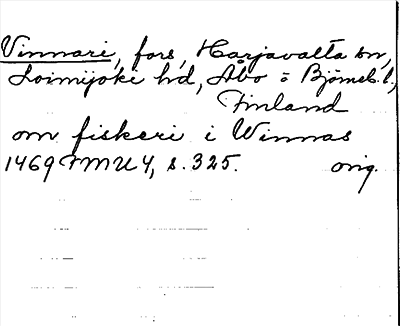 Vinnari, fors, Harjavalta sn,
Loimijoki hd, Åbo o Björneb. l.,
Finland
om fiskeri i Winnas
1469 FMU 4, s. 325. orig.